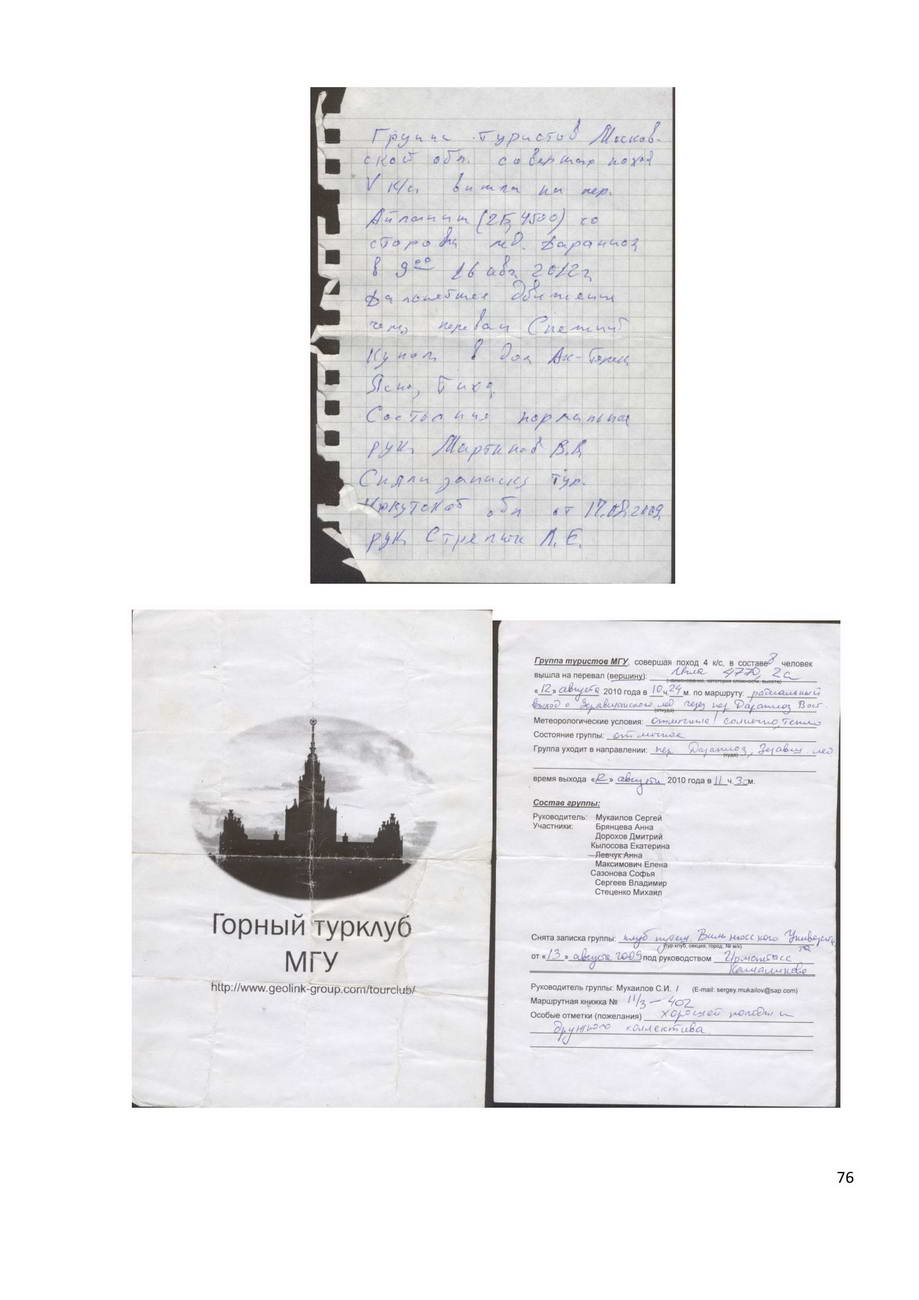 Группа туристов Москов-
ской обл. соверша поход
V к/с вышла на пер.
(2Б, 4500) со
стороны лед.
в 9⁰⁰ 16 авг 2012г
движение
через перевал
в дол
Ясно, Тихо,
Состояние нормальное
рук. Мартынов В.В.
Сняли записку тур.
Иркутской обл от 17.08.2009
рук. Л. Е.
Горный турклуб
МГУ
http://www.geolink-group.com/tourclub/
Группа туристов МГУ, совершая поход 4 к/с, в составе 8 человек
вышла на перевал (вершину): 4770, 2а
(наименование, категория сложности, высота)
«12» августа 2010 года в 10 ч 24 м. по маршруту: радиальный
выход с лед через пер Вост.
(откуда)
Метеорологические условия: отличные! солнечно, тепло
Состояние группы: отличное
Группа уходит в направлении: пер лед
(куда)
время выхода «12» августа 2010 года в 11 ч. 3 м.
Состав группы:
Руководитель: Мукаилов Сергей
Участники: Брянцева Анна
Дорохов Дмитрий
Кылосова Екатерина
Левчук Анна
Максимович Елена
Сазонова Софья
Сергеев Владимир
Стеценко Михаил
Снята записка группы: клуб Вильнюсского Университета
(тур клуб, секция, город, № м/к)
от «13» августа 2009 под руководством
Руководитель группы: Мукаилов С.И. / (E-mail: sergey.mukailov@sap.com)
Маршрутная книжка № 11/3 – 402
Особые отметки (пожелания) хорошей погоды и
дружного коллектива
76